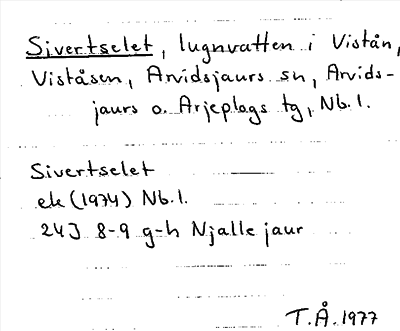 Sivertselet, lugnvatten i Vistån,
Viståsen, Arvidsjaurs sn, Arvids-
jaurs o. Arjeplogs tg, Nb. l.
Sivertselet
ek (1974) Nb. l.
24J 8-9 g-h Njallejaur
T.Å. 1977